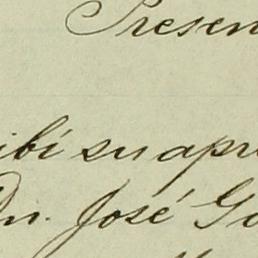 Presen
ibí su apr
Dn. José G